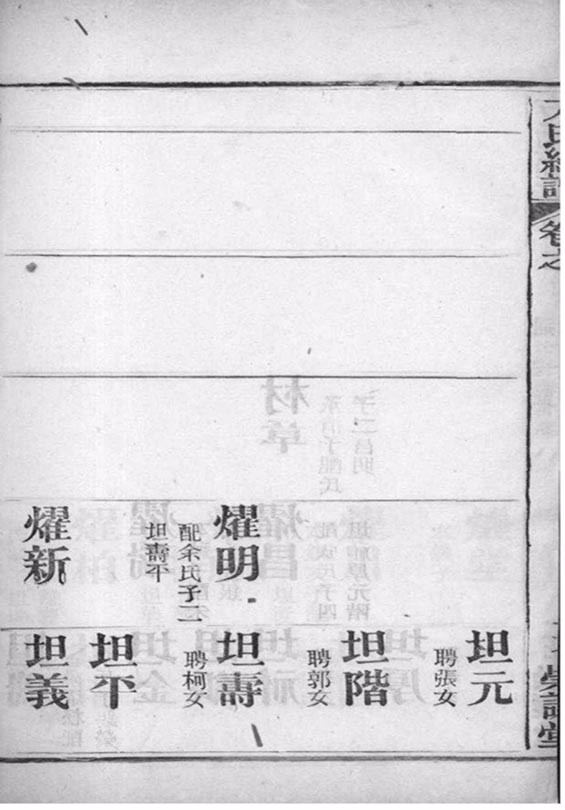 氏總譜
卷之
耀明
配余氏子二
坦壽平
耀新
坦元
聘張女
坦階
聘郭女
坦壽
聘柯女
坦平
坦義